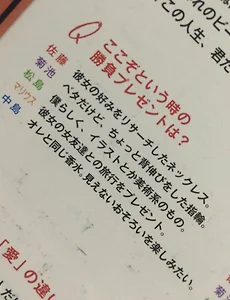 れのピー
この人生、君た
Q ここぞという時の
勝負プレゼントは？
佐藤 彼女の好みをリサーチしたネックレス。
菊池 ベタだけど、ちょっと背伸びをした指輪。
松島 僕らしく、イラストとか美術系のもの。
マリウス 彼女の女友達との旅行をプレゼント。
中島 オレと同じ香水。見えないおそろいを楽しみたい。
「愛」の違い